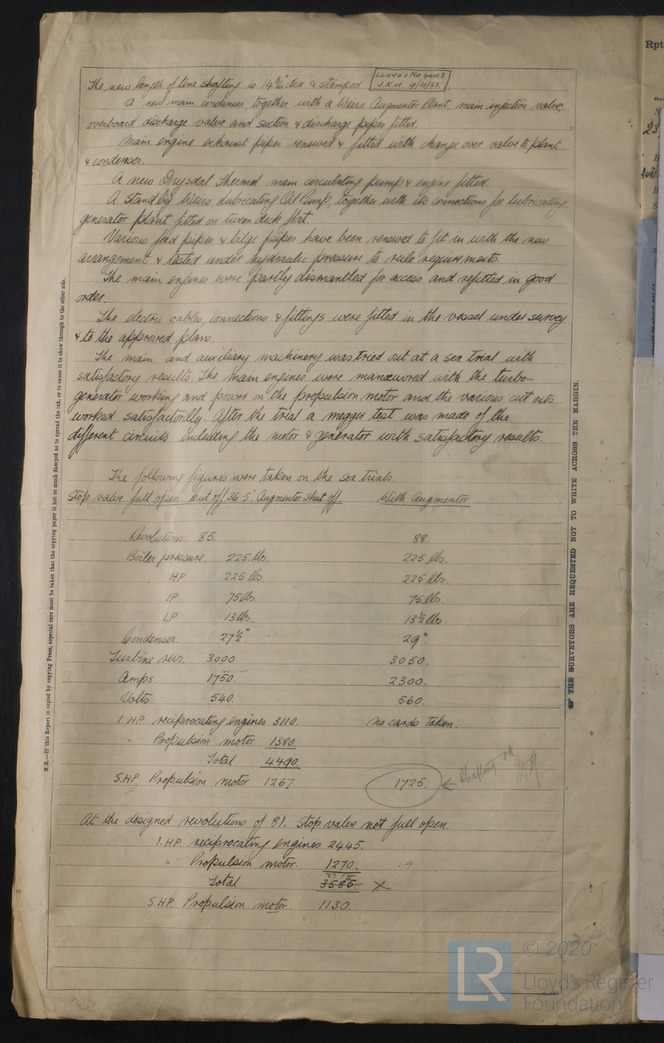 The new length of line shafting is 14 3/8" dia & stamped LLOYD'S No 4003
J.K.W. 9/10/33
A new main condenser, together with a Weirs Augmentor Plant, main injection valve,
overboard discharge valve and suction & discharge pipes fitted.
Main engine exhaust pipes renewed & fitted with change over valve to plant
& condenser.
A new Drysdal Thermal main circulating pump & engine fitted.
A Standby Weirs Lubricating Oil Pump, together with its connections for lubricating
generator plant fitted on tween deck flat.
Various feed pipes & bilge pipes have been renewed to fit in with the new
arrangement & tested under hydraulic pressure to rule requirements.
The main engines were partly dismantled for access and refitted in good
order.
The electric cables, connections & fittings were fitted in the vessel under survey
& to the approved plans.
The main and auxiliary machinery was tried out at a sea trial with
satisfactory results. The main engines were manœuvred with the turbo-
generator working and power on the propulsion motor and the various cut outs
worked satisfactorily. After the trial a megger test was made of the
different circuits including the motor & generator with satisfactory results.
The following figures were taken on the sea trials.
Stop valve full open. Cut off 36·5" Augmentor Shut off. With Augmentor
Revolutions 85. 88.
Boiler pressure. 225 lbs. 225 lbs.
HP 225 lbs. 225 lbs.
IP 75 lbs. 75 lbs.
LP 13 lbs. 13½ lbs
Condenser. 27½" 29"
Turbine revs. 3000. 3050.
Amps. 1750. 2300.
Volts 540. 560.
I.H.P. reciprocating engines 3110. No cards taken.
" Propulsion motor 1380.
Total 4490.
S.H.P. Propulsion motor 1267. 1725. ← Shafting
At the designed revolutions of 81. Stop valve not full open.
I.H.P. reciprocating engines 2445.
" Propulsion motor. 1270. 9
Total 3585 X
S.H.P. Propulsion motor. 1130.
N.B.—If this Report is copied by copying Press, especial care must be taken that the copying paper is not so much damped as to spread the ink, or to cause it to show through to the other side.
☛ THE SURVEYORS ARE REQUESTED NOT TO WRITE ACROSS THE MARGIN.
Rpt
23
LR © 2020
Lloyd's Register
Foundation